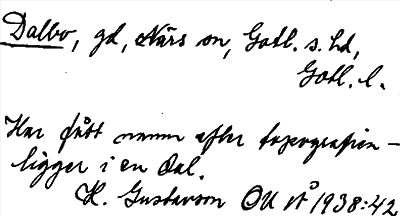 Dalbo, gd, Närs sn, Gotl. s. hd,
Gotl. l.
Har fått namn efter topografien –
ligger i en dal.
H. Gustavson OU nº 1938:42